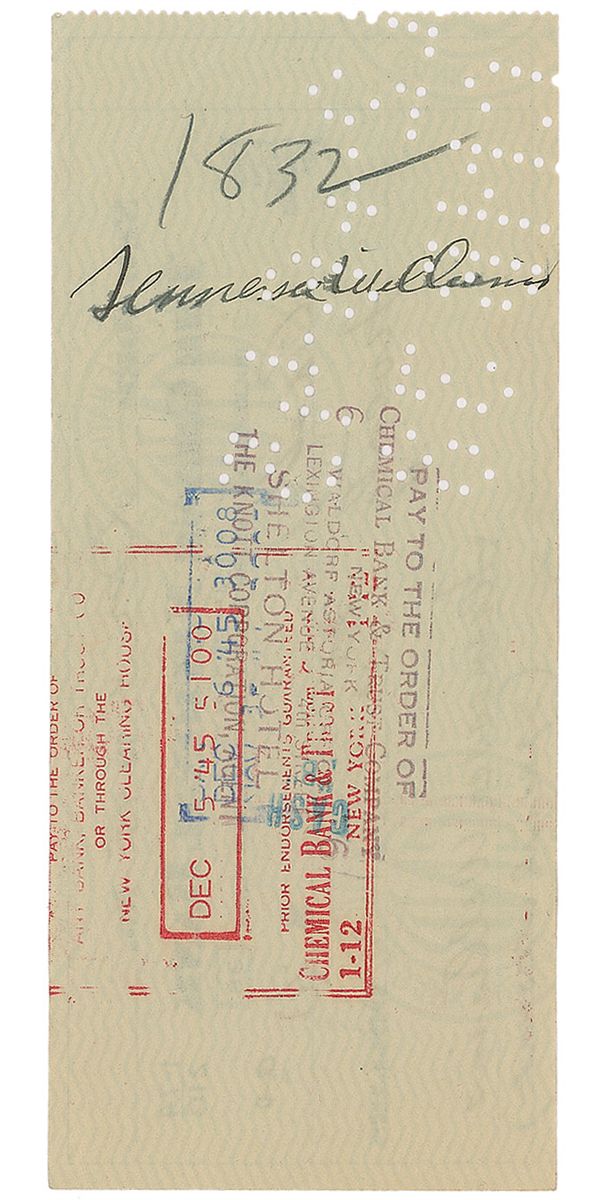 1832
Tennessee Williams
PAY TO THE ORDER OF
CHEMICAL BANK & TRUST COMPANY
6
WALDORF ASTORIA
LEXINGTON AVENUE
NEW YORK
SHELTON HOTEL
THE KNOTT CORPORATION
3008
DEC 6 '45
DEC 5 '45 5 100
PAY TO THE ORDER OF
ANY BANK, BANKER OR TRUST CO
OR THROUGH THE
NEW YORK CLEARING HOUSE
PRIOR ENDORSEMENTS GUARANTEED
CHEMICAL BANK &
1-12 NEW YORK 1-12